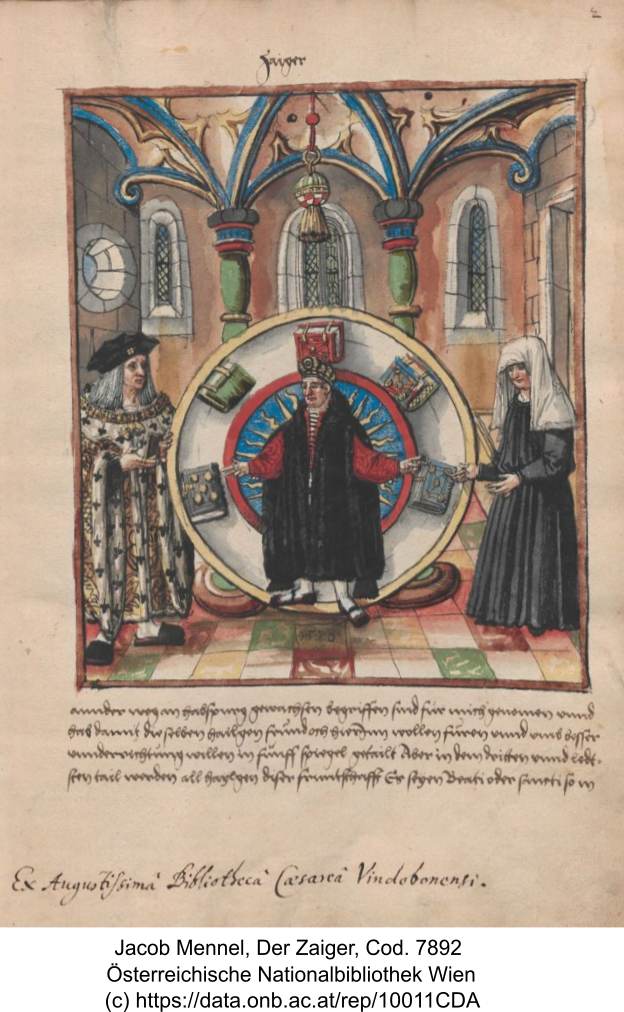 2
Zaiger
annder weg an habspurg gewachsen begriffen sind für mich genomen vnnd
hab damit die selben hailgen fründ och hierInn wollen füren vnnd vmb besser
vnnderrichtung willen in fünff spiegel getailt Aber in dem dritten vnnd
sten tail werden all haylgen diser fruntschafft Es seyen Beati oder sancti so in
Ex Augustissimâ Bibliothecâ Cæsareâ Vindobonensi.
Jacob Mennel, Der Zaiger, Cod. 7892
Österreichische Nationalbibliothek Wien
(c) https://data.onb.ac.at/rep/10011CDA